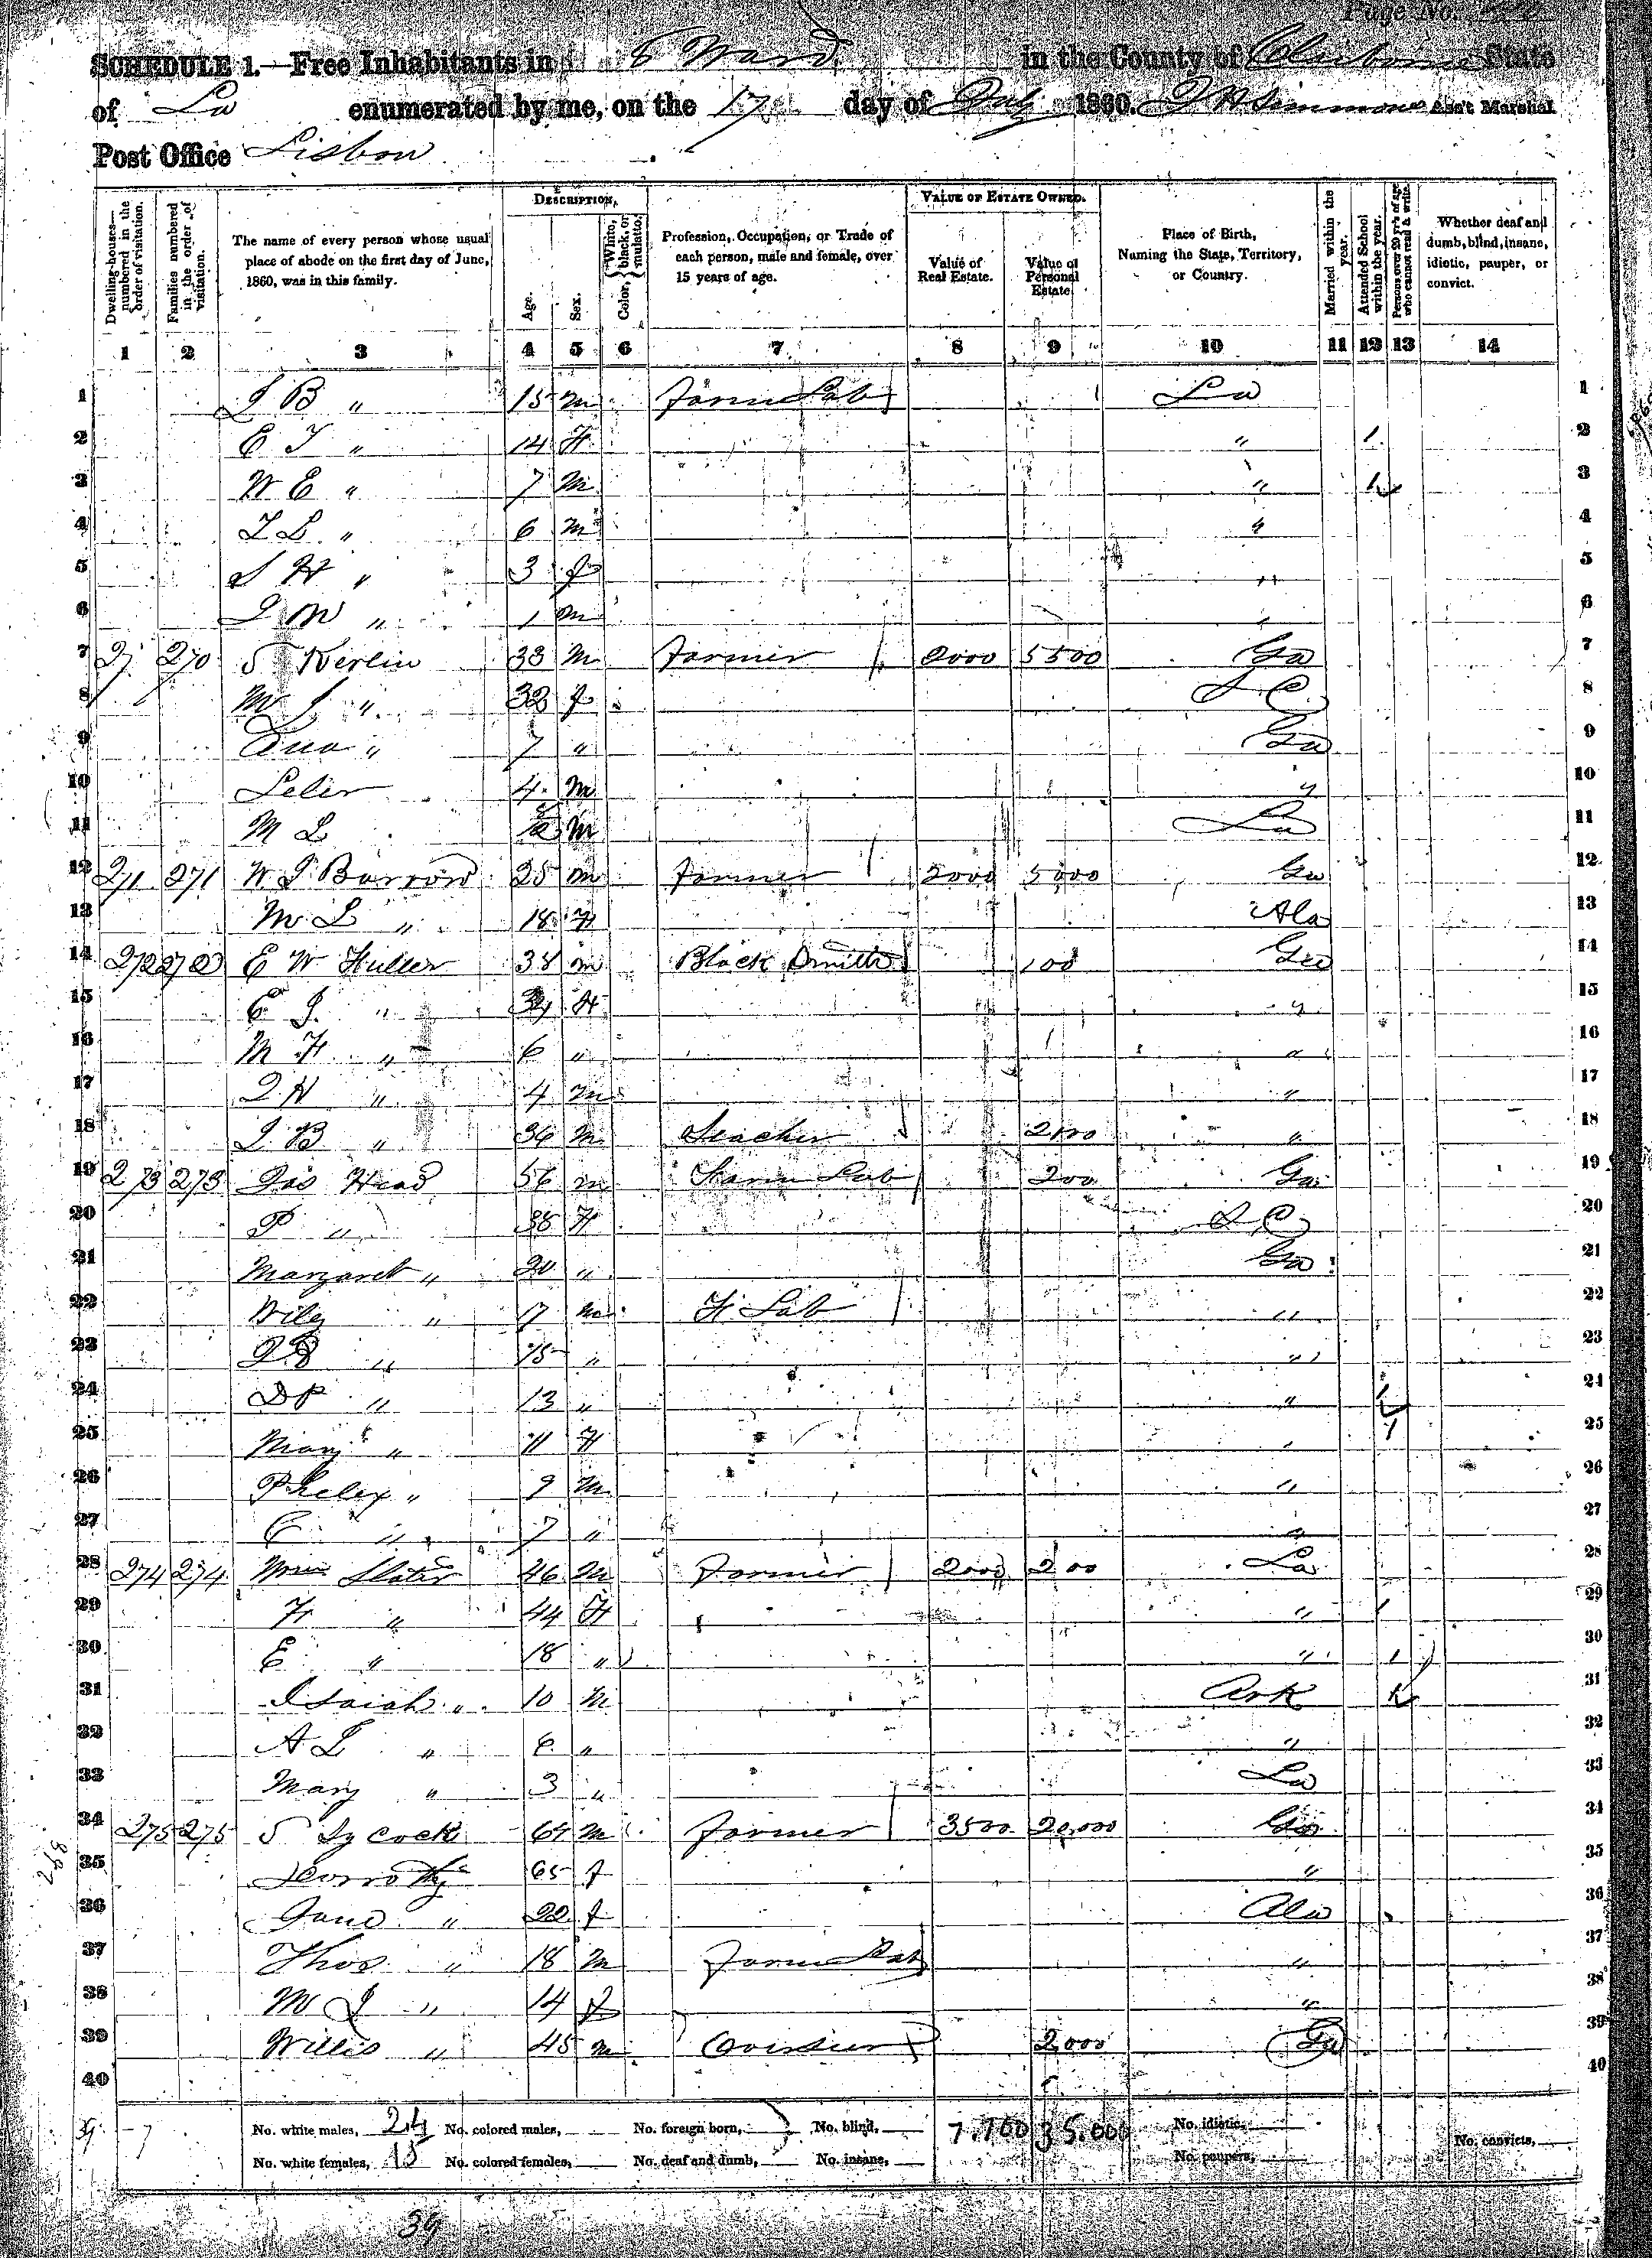 Page No.
SCHEDULE 1.—Free Inhabitants in 8 Ward in the County of Claiborne State
of La enumerated by me, on the 17 day of July 1860. Simmons Ass't Marshal
Post Office Lisbon
DESCRIPTION. VALUE OF ESTATE OWNED.
Dwelling-houses—numbered in the order of visitation. Families numbered in the order of visitation. The name of every person whose usual place of abode on the first day of June, 1860, was in this family. Age. Sex. Color, { White, black, or mulatto. Profession, Occupation, or Trade of each person, male and female, over 15 years of age. Value of Real Estate. Value of Personal Estate. Place of Birth, Naming the State, Territory, or Country. Married within the year. Attended School within the year. Persons over 20 y'rs of age who cannot read & write. Whether deaf and dumb, blind, insane, idiotic, pauper, or convict.
1 2 3 4 5 6 7 8 9 10 11 12 13 14
1 J B " 15 m Farm Lab La 1
2 E J " 14 F " 1 2
3 W E " 7 M " 1 3
4 L L " 6 m " 4
5 S H " 3 f " 5
6 J W " 1 m " 6
7 27 270 S Kerlin 33 M Farmer 2000 5500 Ga 7
8 M J " 32 f S C 8
9 " 7 " Ga 9
10 4 M " 10
11 M L M La 11
12 271 271 W J Barrow 25 m Farmer 2000 5000 Ga 12
13 M L " 18 F Ala 13
14 272 272 E W 38 m Black Smith 100 Geo 14
15 E J. " F " 15
16 M F " 6 " " 16
17 J H " 4 m " 17
18 J B " 36 M Teacher " 18
19 273 273 Jas Head 56 m Farm Lab 200 Ga 19
20 P " 38 F S C 20
21 Margaret " 20 " Ga 21
22 Wiley " 17 m F Lab " 22
23 J B " 15 " " 23
24 D P " 13 " " 1 24
25 Mary " 11 F " 1 25
26 Pheley " 9 M " 26
27 C " 7 " " 27
28 274 274 Wm Slater 46 M Farmer 2000 200 La 28
29 F " 44 F " 29
30 E " 18 " " 1 30
31 Isaiah " 10 M Ark 1 31
32 A L " 6 " " 32
33 Mary " 3 " La 33
34 275 275 S Sycock 64 M Farmer 3500 20,000 Geo 34
35 Dorrothy 65 f " 35
36 Jane " 22 f Ala 36
37 Thos " 18 M Farm Lab " 37
38 M J " 14 f " 38
39 Willis " 45 m Overseer 2000 Ga 39
40 40
No. white males, 24 No. colored males, No. foreign born, No. blind, 35.000 No. idiotic,
No. white females, 15 No. colored females, No. deaf and dumb, No. insane, No. paupers, No. convicts,
39